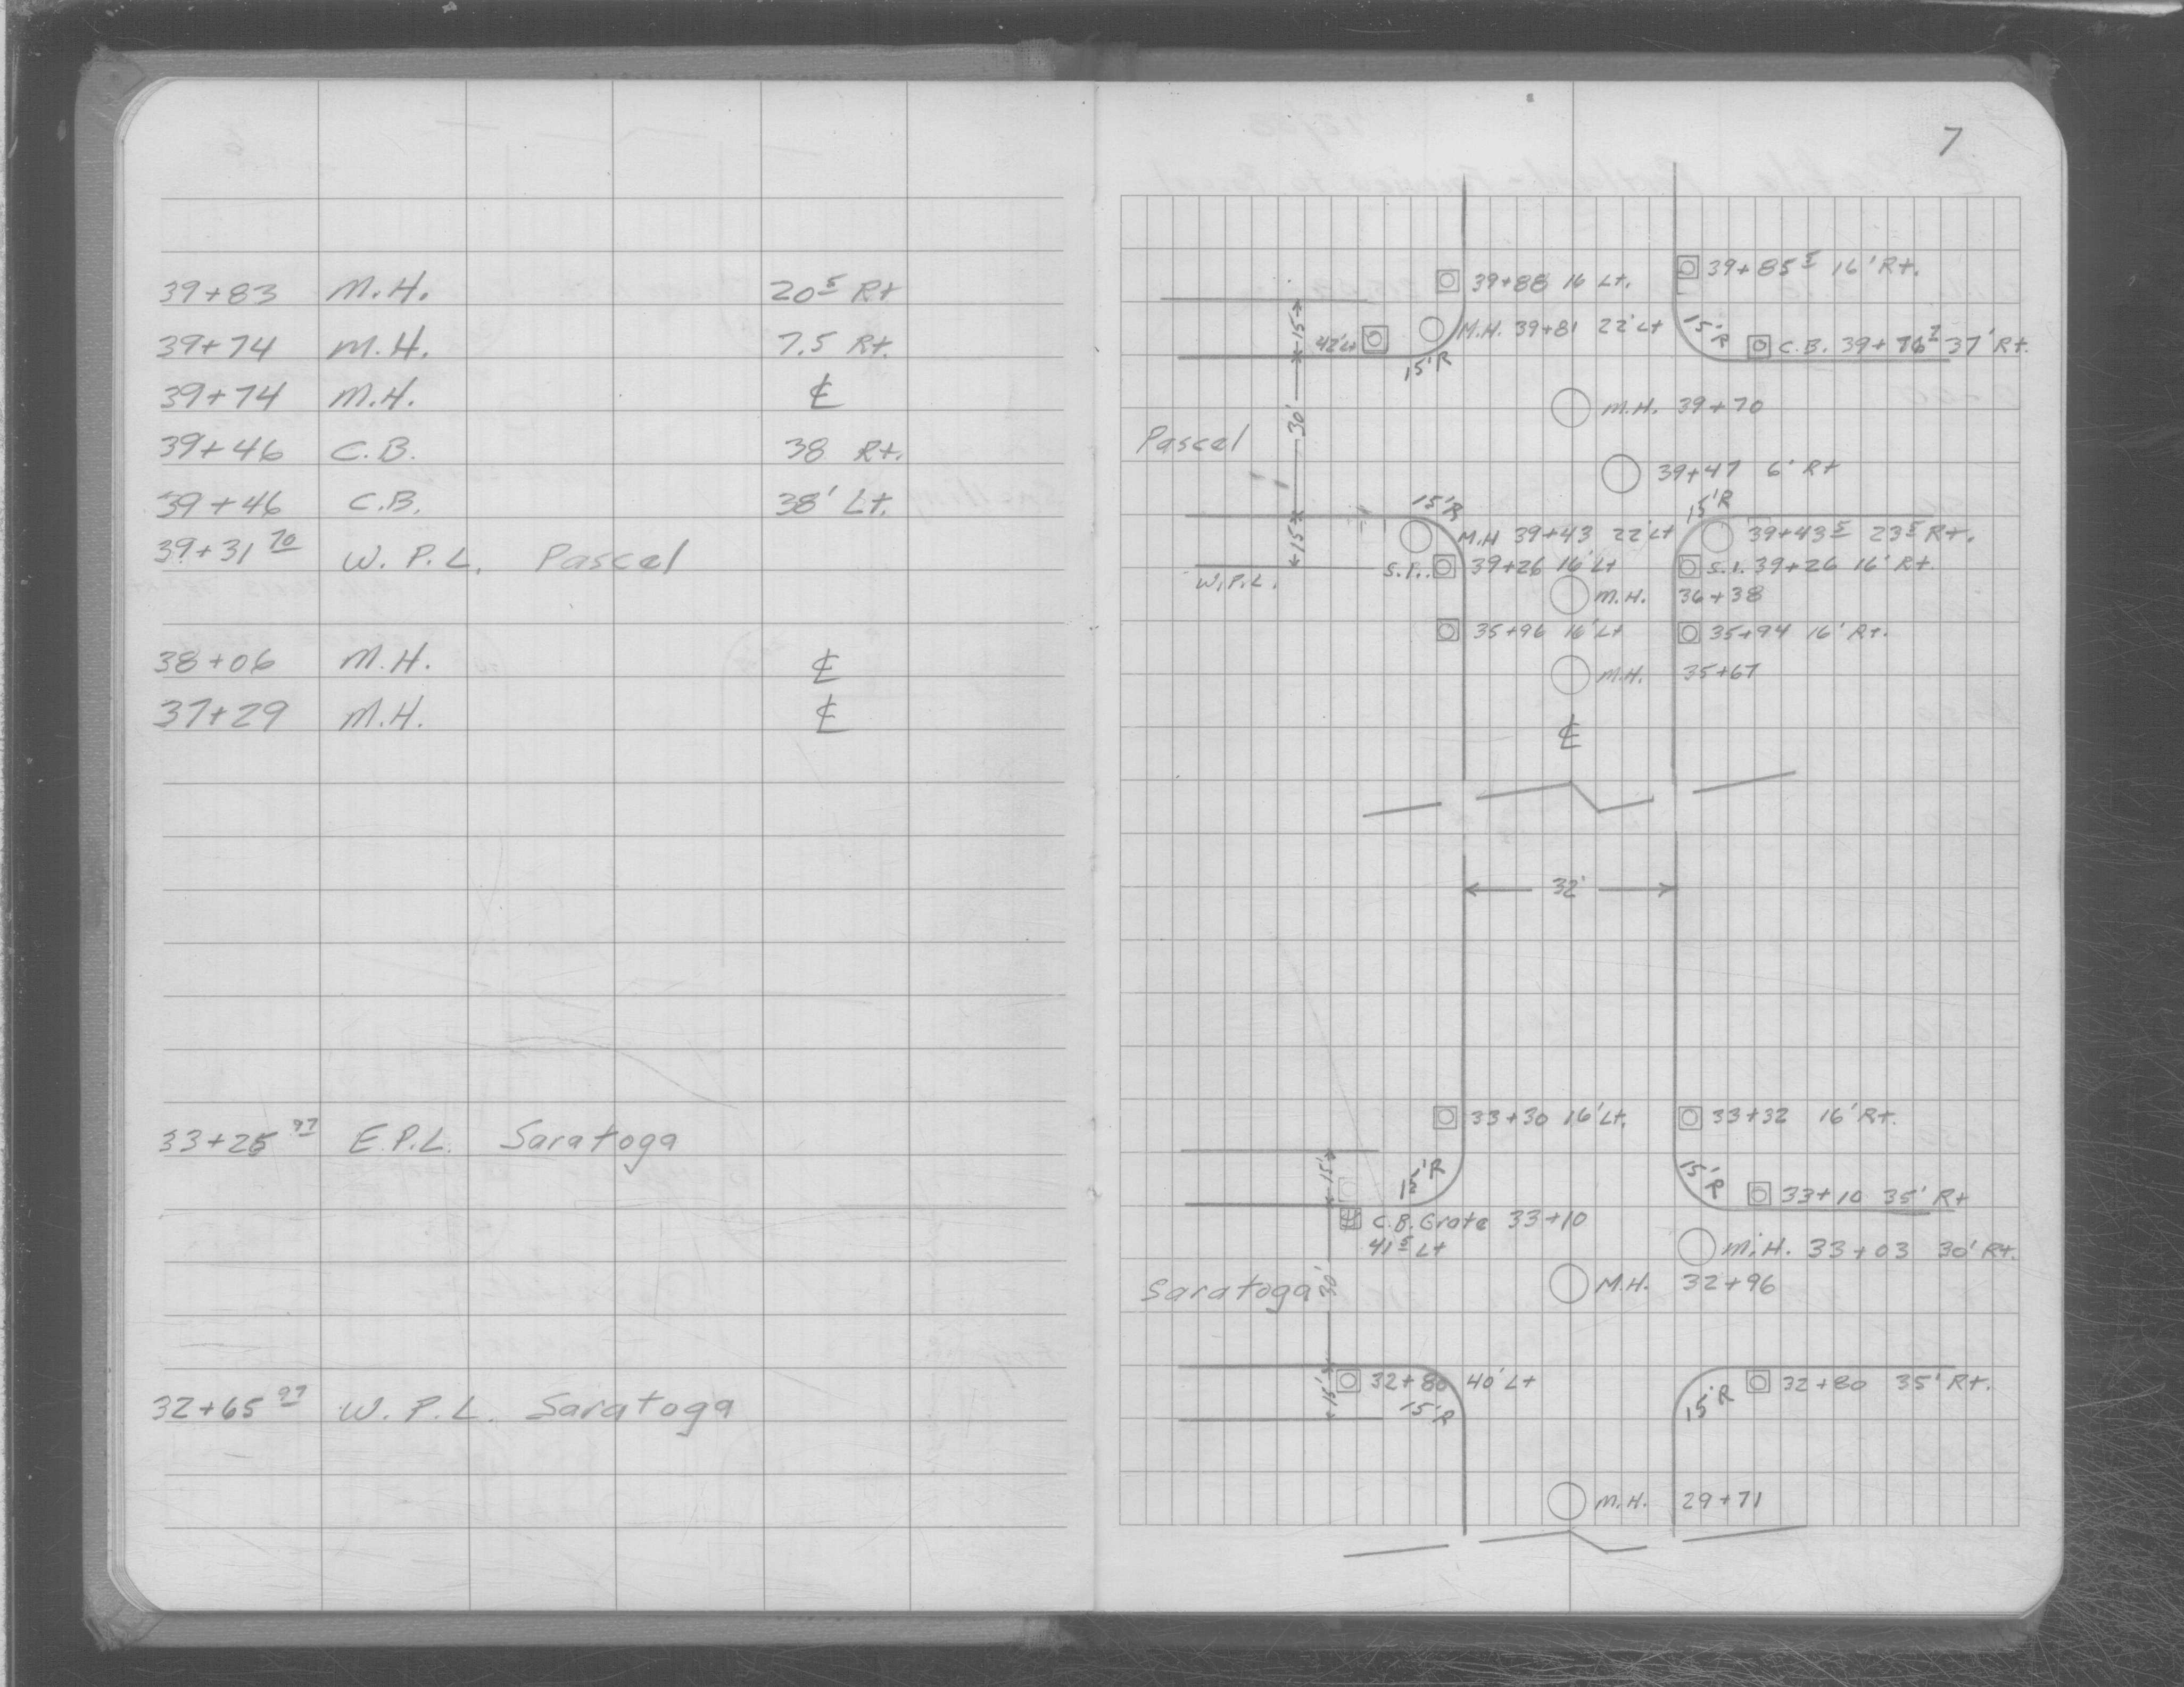 39+83 M.H. 20⁵ Rt
39+74 M.H. 7.5 Rt.
39+74 M.H. ℄
39+46 C.B. 38 Rt.
39+46 C.B. 38' Lt.
39+31⁷⁰ W. P. L. Pascal
38+06 M.H. ℄
37+29 M.H. ℄
33+25⁹⁷ E.P.L. Saratoga
32+65⁹⁷ W. P. L. Saratoga
7
39+88 16 Lt.
39+85⁵ 16' Rt.
15
42' Lt
M.H. 39+81 22' Lt
15'R
15'R
C.B. 39+76² 37' Rt.
M.H. 39+70
Pascal
30'
39+47 6' Rt
15'R
15'R
15
M.H 39+43 22' Lt
39+43⁵ 23⁵ Rt.
S.I. 39+26 16' Lt
S.I. 39+26 16' Rt.
W.P.L.
M.H. 36+38
35+96 16' Lt
35+94 16' Rt.
M.H. 35+67
℄
32'
33+30 16' Lt.
33+32 16' Rt.
15'
15'R
15'R
33+10 35' Rt
C.B. Grate 33+10
41⁵ Lt
M.H. 33+03 30' Rt.
Saratoga
30'
M.H. 32+96
15'
32+80 40' Lt
15'R
15'R
32+80 35' Rt.
M.H. 29+71